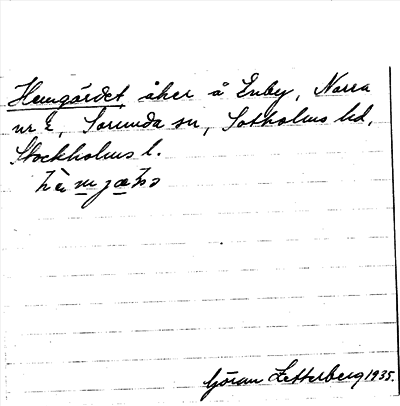 Hemgärdet åker å Enby, Norra
nr 2, Sorunda sn, Sotholms hd,
Stockholms l.
Göran Zetterberg 1935.